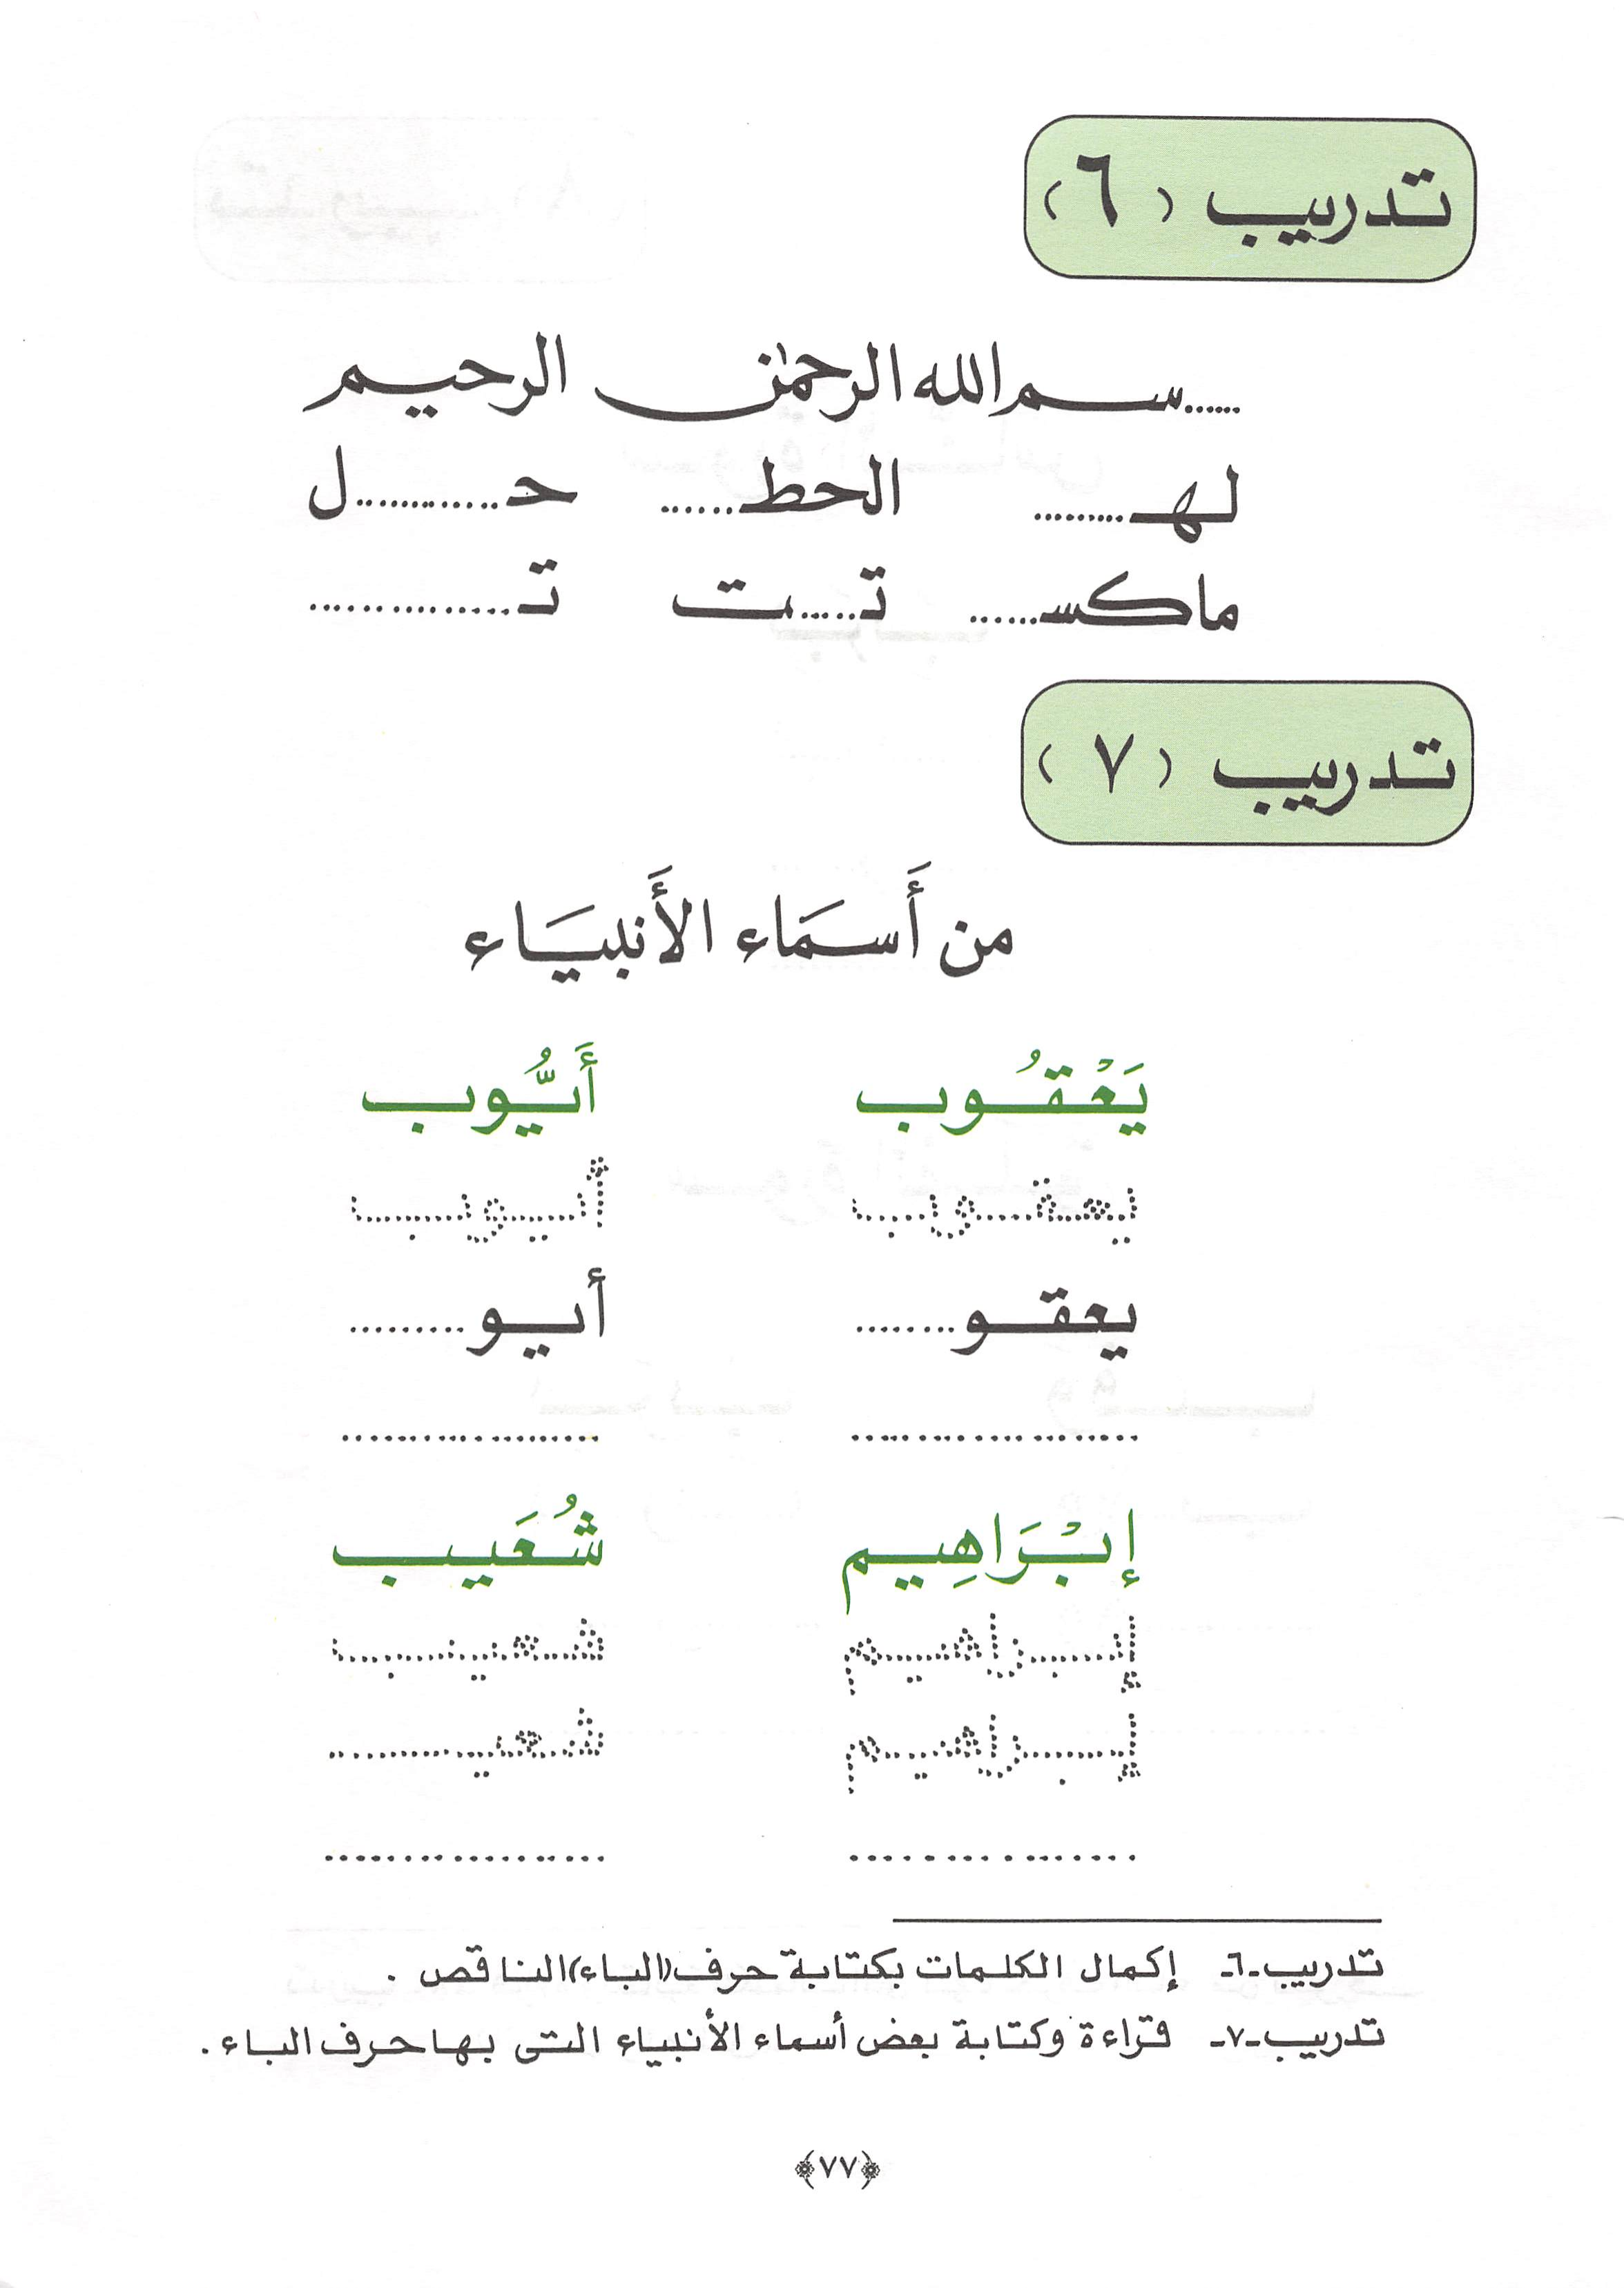 تدريب (٦)
......سم الله الرحمٰن الرحيم
لهـ......... الحطـ...... حـ............ل
ماكسـ...... تـ.....ـت تـ..............
تدريب (٧)
من أَسمَاء الأَنبيَاء
يَعْقُوب أَيُّوب
يعقوب أيوب
يعقو........ أيو.........
.................... ..................
إبْرَاهِيم شُعَيب
إبراهيم شعيب
إبراهيم شعيـ..........
................ ..................
تدريب-٦- إكمال الكلمات بكتابة حرف((الباء))الناقص .
تدريب-٧- قراءة وكتابة بعض أسماء الأنبياء التى بها حرف الباء .
﴿٧٧﴾